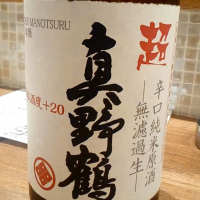 MANOTSURU
酒
超
辛口純米原酒
―無濾過生―
真野鶴
酒度+20